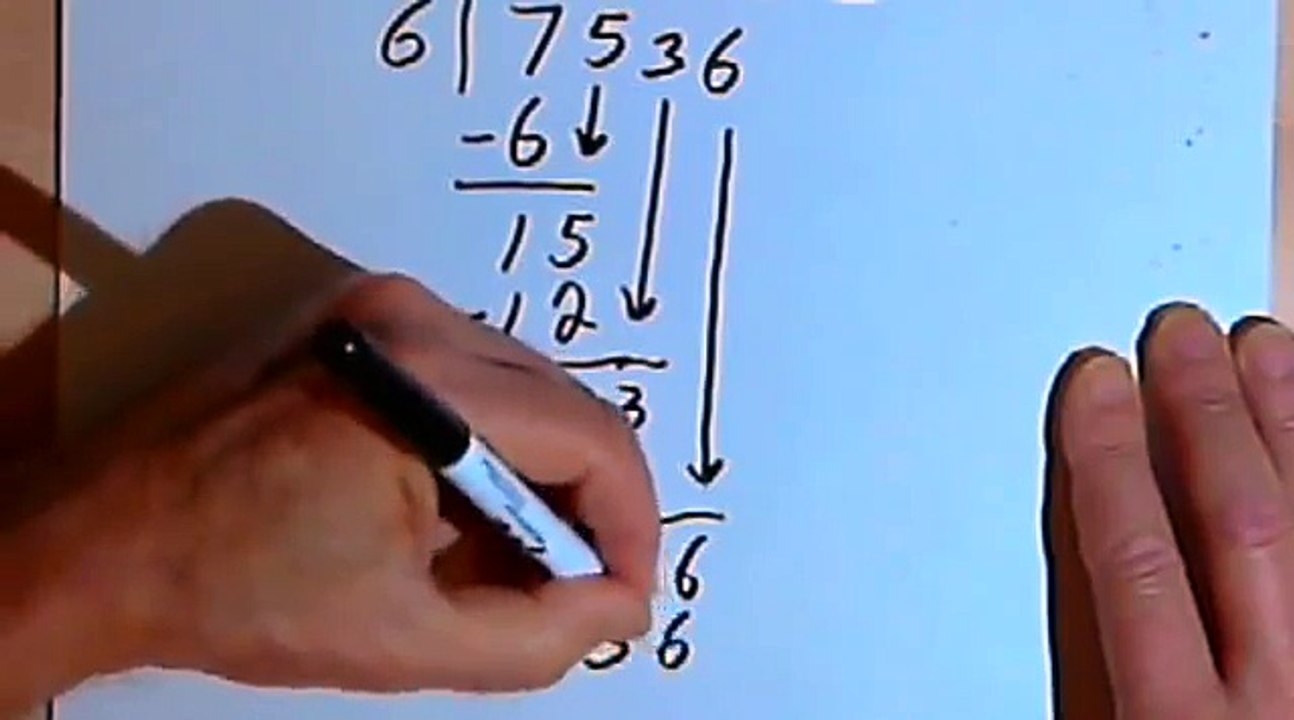 6 7536
-6
15
-12
3
6
36